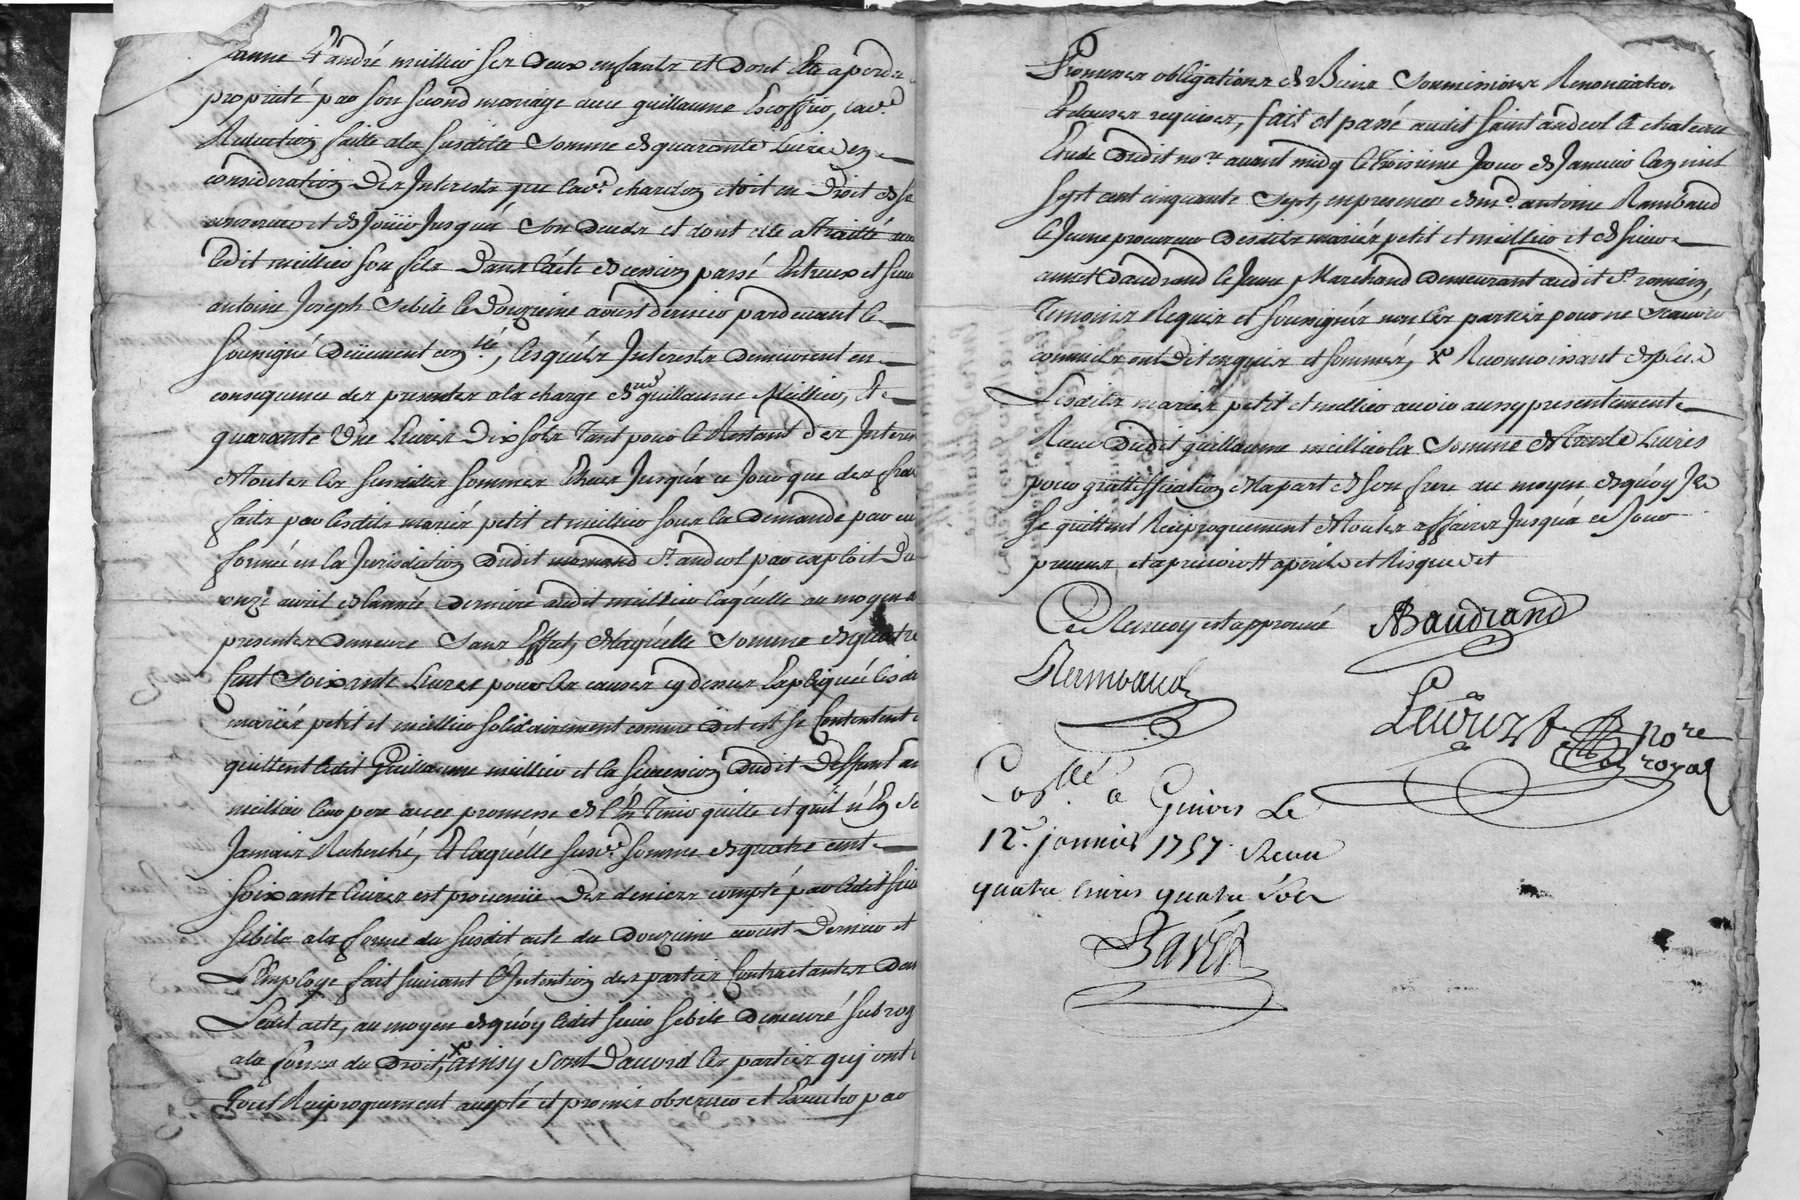 Jeanne et andré meillier ses deux enfants et dont Elle a perdu
propriété par son second mariage avec guillaume Escoffier, lad.e
Reduction faitte a la susditte somme de quarante Livres en
consideration des Interests que lad.e chardon etoit en Droit de se
conserver et de Joüir Jusqu'a son deceds et dont elle a traitté
ledit meillier son fils dans l'acte de cession passé Entreux et sieur
antoine Joseph Sebile le Douzieme aoust dernier pardevant le
soussigné Düement con.llé, lesquéls Interests demeurent en
consequence des presentes a la charge dud guillaume Meillier, Et
quarante Une Livres Dix sols tant pour le Restant des Interets
de toutes les susdittes sommes Echus Jusqu'a ce Jour que des frais
faits par lesdits mariés petit et meillier sur la Demande par eux
formée en la Jurisdiction dudit St. andeol par exploit du
onze avril de l'année derniere audit meillier laquélle au moyen des
presentes demeure sans Effet, de laquélle somme de quatre
Cent soixante Livres pour les causes cy dessus Expliqué lesdits
mariés petit et meillier solidairement comme dit est se Contentent
quittent ledit Guillaume meillier et la succession dudit deffunt
meillier leur pere avec promesse de l'En tenir quitte et qu'il n'En sera
Jamais Recherché, Et laquélle susd.e somme de quatre cent
soixante livres est provenüe des deniers compté par ledit sieur
Sebile a la forme du susdit acte du Douzieme aoust Dernier et
L'Employe fait suivant l'Intention des parties Contractantes dans
Ledit acte, au moyen de quóy ledit sieur Sebile demeure subrogé
a la forme du Droit, x ainsy sont D'accord les parties quj ont
Le tout Reciproquement accepté et promis observer et Executer par
Promesses obligations de Biens Soumissions Renonciations
Et clauses requises, fait et passé audit saint andeol le chateau
Etude dudit no.re avant midy le troisieme Jour de Janvier l'an mil
sept cent cinquante sept, en presence de m.e antoine Rambaud
le Jeune procureur desdits mariés petit et meillier et de sieur
annet Baudrand le Jeune Marchand demeurant audit St. romain,
Temoins Requis et soussignés non les parties pour ne sçavoir
comme ils ont dit enquis et sommés, x Reconnoissant de plus
Lesdits mariés petit et meillier avoir aussy presentement
Receu dudit guillaume meillier la somme de trente Livres
pour grattiffication de la part de son frere au moyen de quóy Ils
se quittent Reciproquement de toutes affaires Jusqu'a ce Jour
Ce Renvoy est approuvé ABaudrand
Rambaud
no.re
royal
Con.llé a Givors Le
12.e janvier 1757. Receu
quatre livres quatre sols